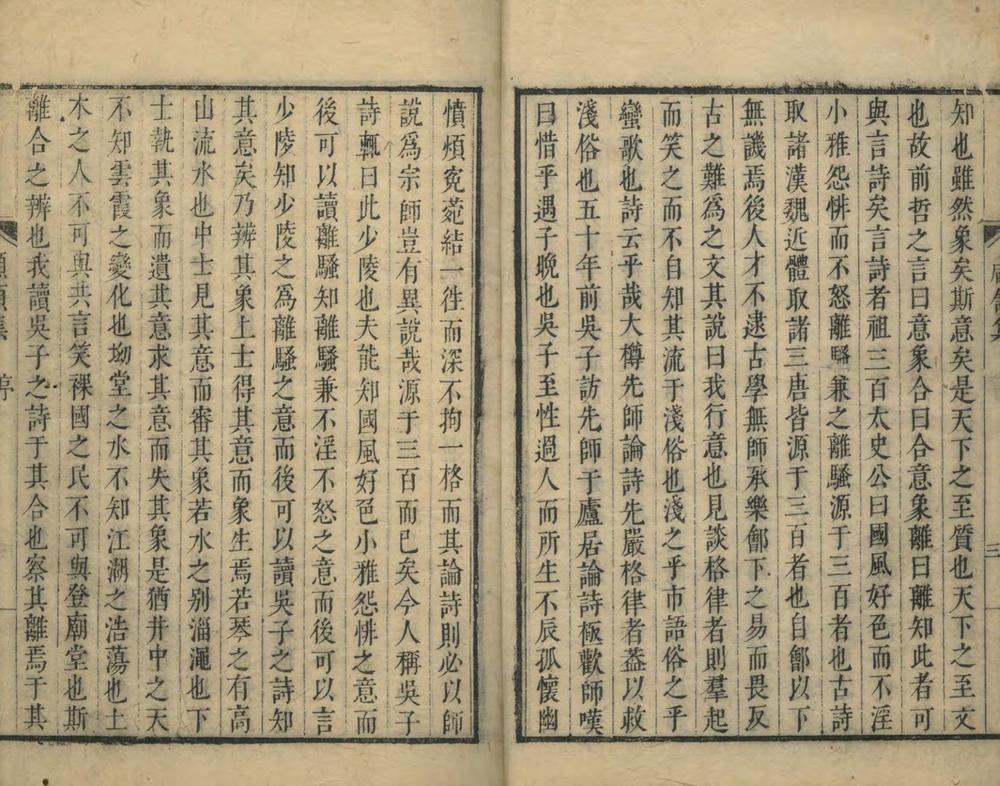 知也雖然象矣斯意矣是天下之至質也天下之至文
也故前哲之言曰意象合曰合意象離曰離知此者可
與言詩矣言詩者祖三百太史公曰國風好色而不淫
小雅怨悱而不怒離騷兼之離騷源于三百者也古詩
取諸漢魏近體取諸三唐皆源于三百者也自鄶以下
無譏焉後人才不逮古學無師承樂鄶下之易而畏反
古之難爲之文其說曰我行意也見談格律者則羣起
而笑之而不自知其流于淺俗也淺之乎市語俗之乎
蠻歌也詩云乎哉大樽先師論詩先嚴格律者葢以救
淺俗也五十年前吳子訪先師于廬居論詩極歡師嘆
曰惜乎遇子晚也吳子至性過人而所生不辰孤懷幽
憤煩寃菀結一徃而深不拘一格而其論詩則必以師
說爲宗師豈有異說哉源于三百而已矣今人稱吳子
詩輒曰此少陵也夫能知國風好色小雅怨悱之意而
後可以讀離騷知離騷兼不淫不怒之意而後可以言
少陵知少陵之爲離騷之意而後可以讀吳子之詩知
其意矣乃辨其象上士得其意而象生焉若琴之有高
山流水也中士見其意而審其象若水之别淄澠也下
士執其象而遺其意求其意而失其象是猶井中之天
不知雲霞之變化也坳堂之水不知江湖之浩蕩也土
木之人不可與共言笑裸國之民不可與登廟堂也斯
離合之辨也我讀吳子之詩于其合也察其離焉于其
序
三